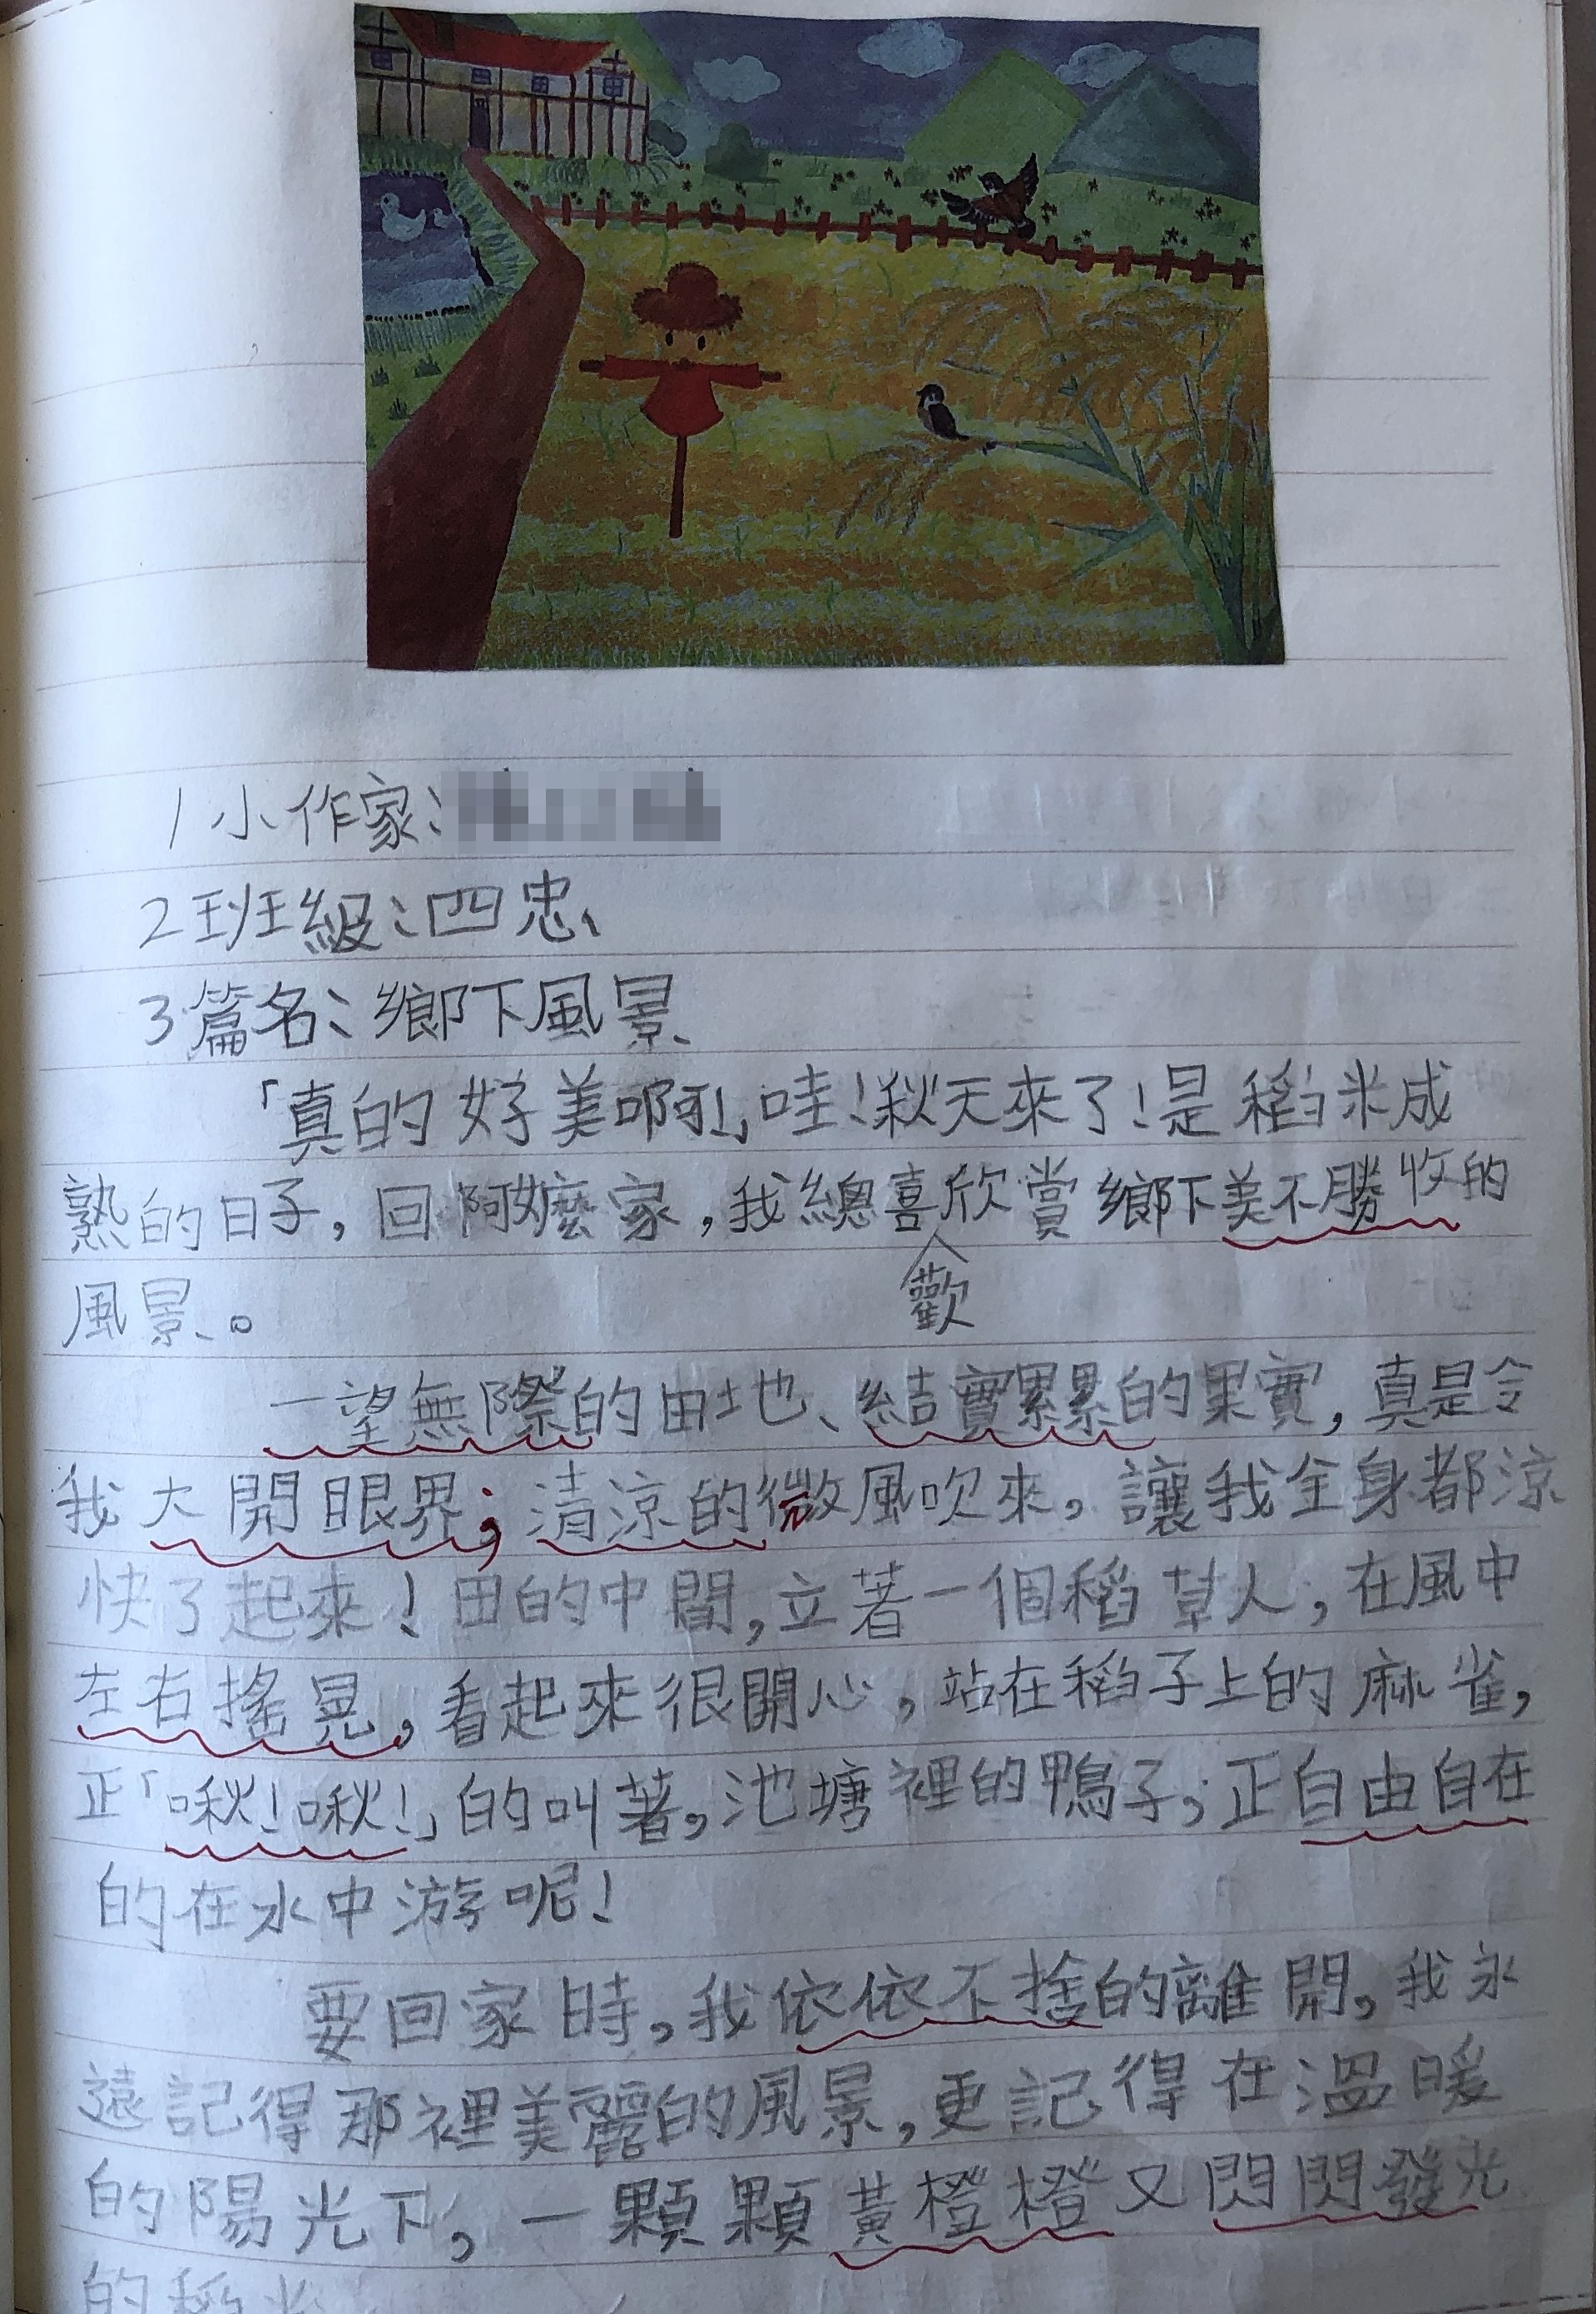 1 小作家：
2 班級：四忠
3 篇名：鄉下風景
「真的好美啊！」哇！秋天來了！是稻米成
熟的日子，回阿嬤家，我總喜歡欣賞鄉下美不勝收的
風景。
一望無際的田地、結實累累的果實，真是令
我大開眼界；清涼的微風吹來，讓我全身都涼
快了起來！田的中間，立著一個稻草人，在風中
左右搖晃，看起來很開心，站在稻子上的麻雀，
正「啾！啾！」的叫著，池塘裡的鴨子，正自由自在
的在水中游呢！
要回家時，我依依不捨的離開，我永
遠記得那裡美麗的風景，更記得在溫暖
的陽光下，一顆顆黃橙橙又閃閃發光
的稻米